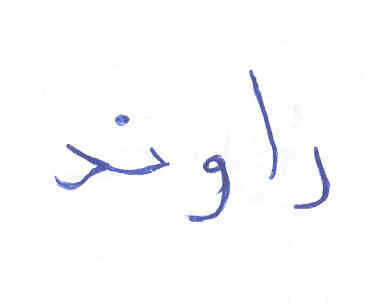 راوند